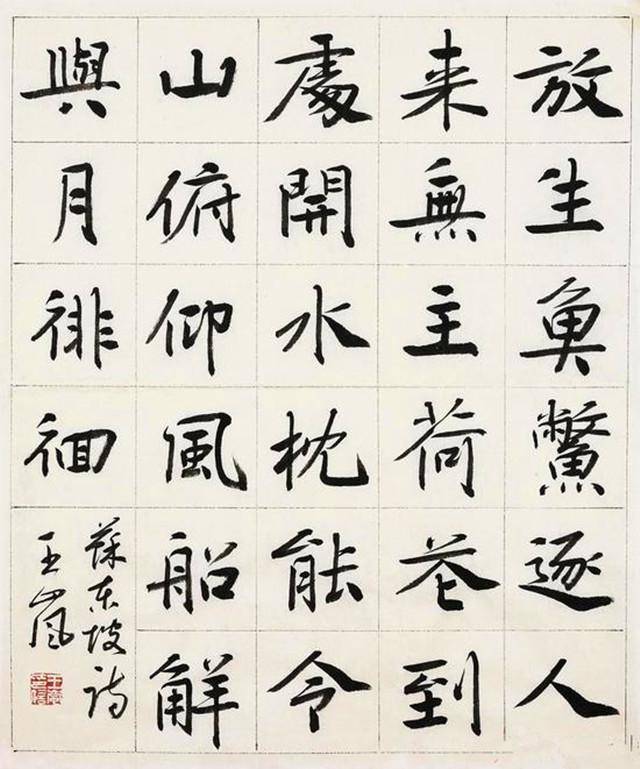 放生魚鱉逐人
来無主荷花到
處開水枕能令
山俯仰風船解
與月徘徊
蘇東坡詩
王嵐